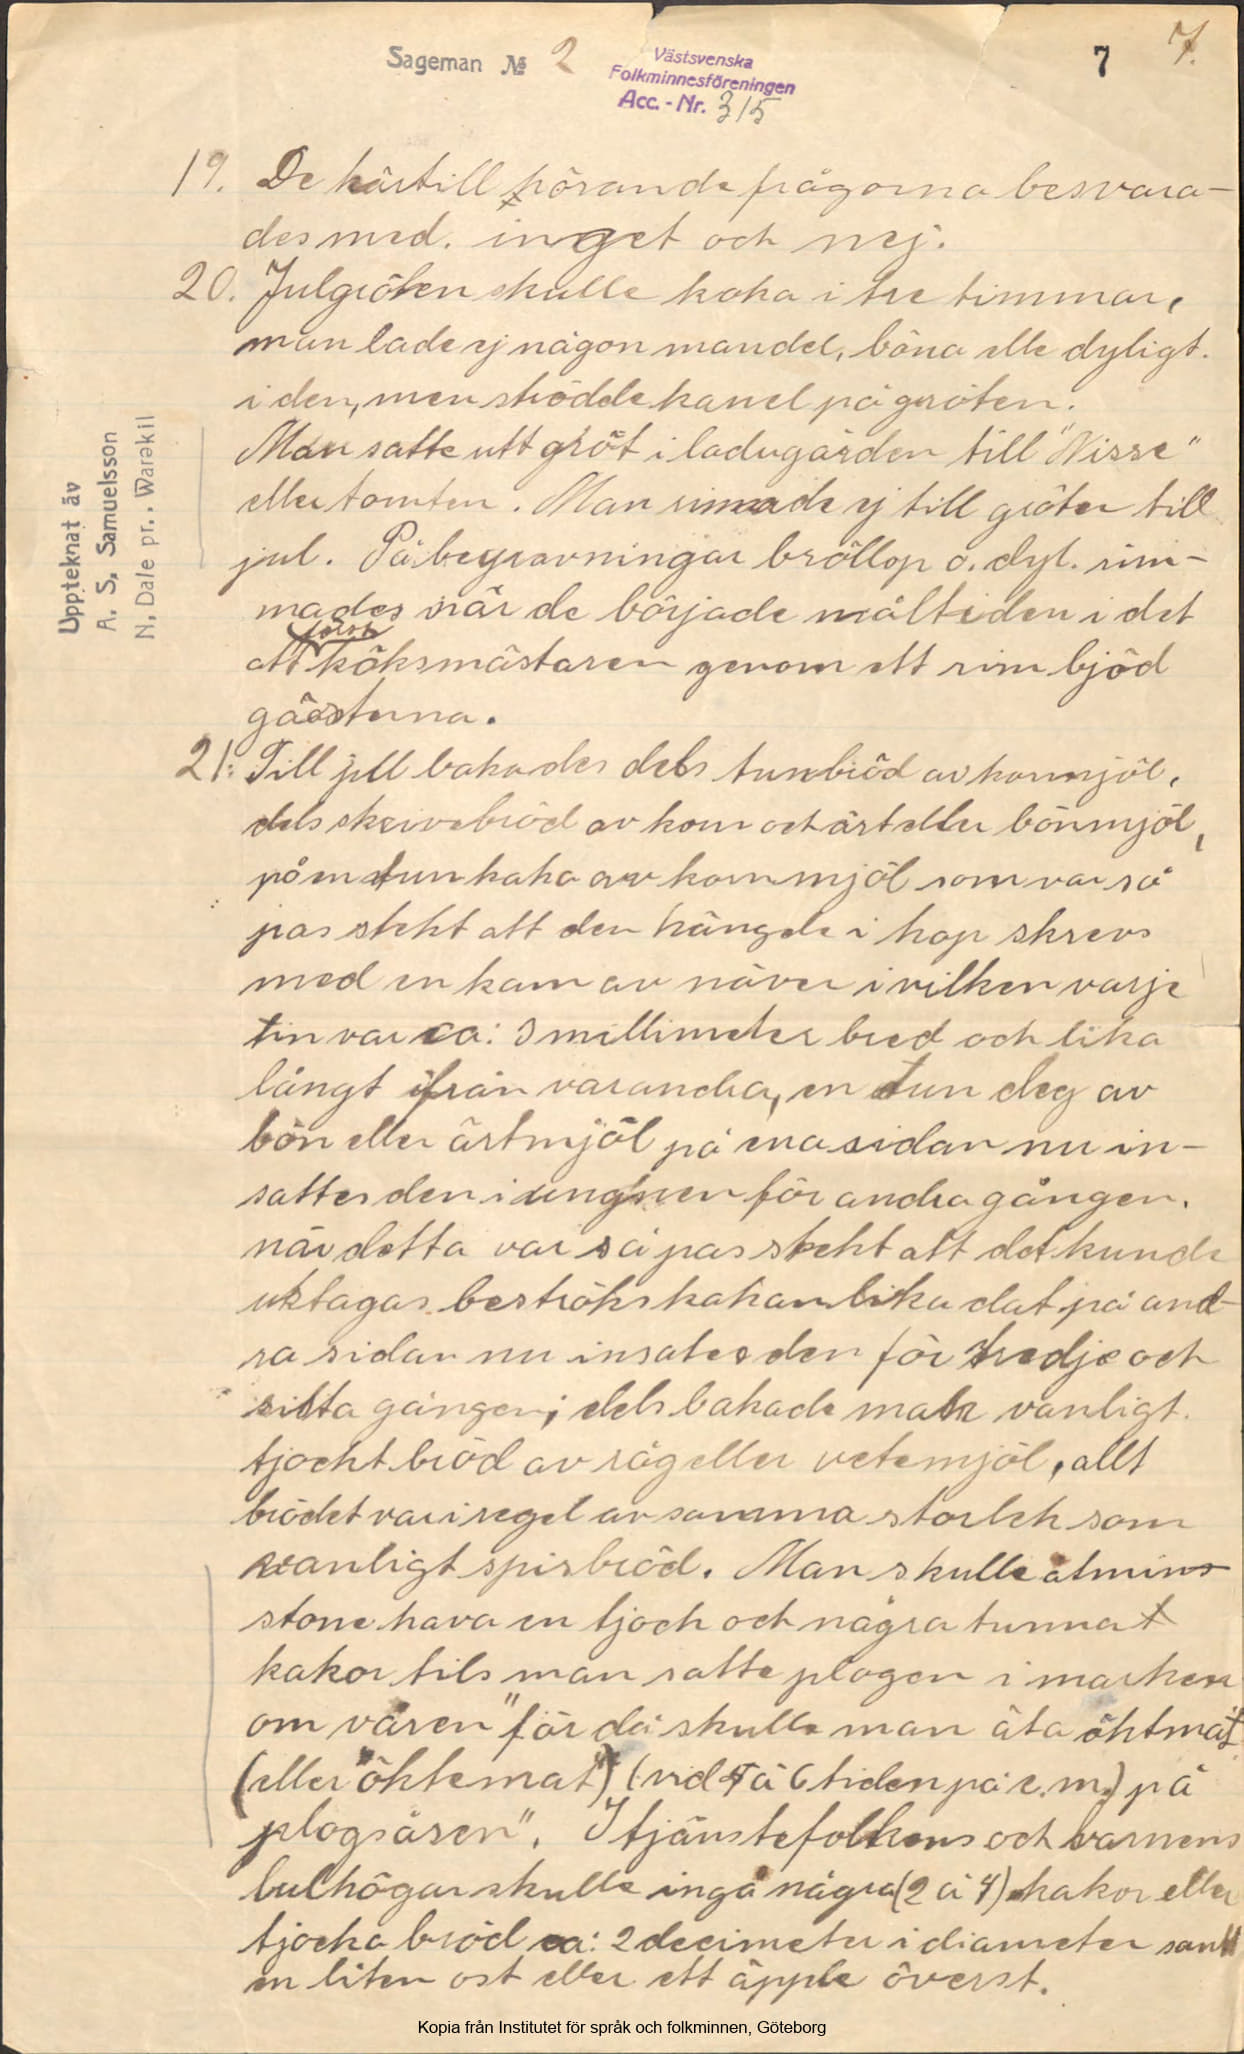 Sageman № 2
Västsvenska
Folkminnesföreningen
Acc. - Nr. 315
7
7.
Uppteknat äv
A. S. Samuelsson
N. Dale pr. Warekil
19. De härtill hörande frågorna besvara-
des med. inget och nej.
20. Julgröten skulle koka i tre timmar,
man lade ej någon mandel, böna elle dyligt.
i den, men strödde kanel på gröten.
Man satte utt gröt i ladugården till "Nisse"
eller tomten. Man rimade ej till gröten till
jul. På begravningar bröllop o. dyl. rim-
mades när de började måltiden i det
först
att köksmästaren genom ett rim bjöd
gästerna.
21: Till jull bakades dels tunbröd av kornmjöl,
dels skrivebröd av korn och ärt eller bönmjöl,
på en tun kaka av kornmjöl som var så
pas stekt att den hängde i hop skrevs
med en kam av näver i vilken varje
tin var ca: 3 millimeter bred och lika
långt ifrån varandra, en tun deg av
bön eller ärtmjöl på ena sidan nu in-
sattes den i ungnen för andra gången.
när detta var så pas stekt att det kunde
uttagas beströks kakan lika dat på and-
ra sidan nu insates den för tredje och
sista gången; dels bakade man vanligt.
tjockt bröd av råg eller vetemjöl, allt
brödet var i regel av samma storlek som
vanligt spisbröd. Man skulle åtmins
stone hava en tjock och några tunna
kakor tils man satte plogen i marken
om våren "för då skulle man äta öktmat
(eller "öktemat") (vid 5 à 6 tiden på e.m.) på
plogsåren". I tjänstefolkens och barnens
julhögar skulle ingå några (2 à 4) kakor eller
tjocka bröd ca: 2 decimeter i diameter samt
en liten ost eller ett äpple överst.
Kopia från Institutet för språk och folkminnen, Göteborg